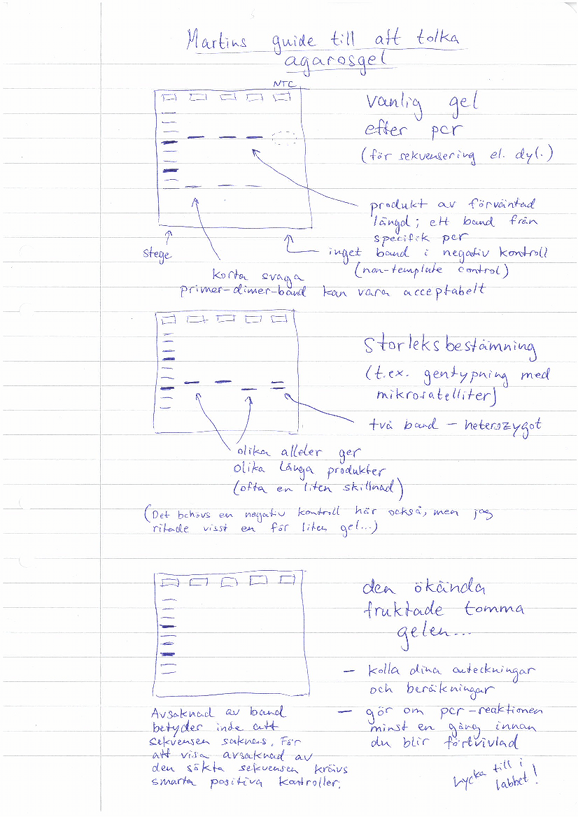 Martins guide till att tolka
agarosgel
NTC
vanlig gel
efter pcr
(för sekvensering el. dyl.)
produkt av förväntad
längd; ett band från
specifik pcr
stege
inget band i negativ kontroll
(non-template control)
korta svaga
primer-dimer-band kan vara acceptabelt
Storleksbestämning
(t.ex. gentypning med
mikrosatelliter)
två band – heterozygot
olika alleler ger
olika långa produkter
(ofta en liten skillnad)
(Det behövs en negativ kontroll här också, men jag
ritade visst en för liten gel...)
den ökända
fruktade tomma
gelen...
– kolla dina anteckningar
och beräkningar
– gör om pcr-reaktionen
minst en gång innan
du blir förtvivlad
Avsaknad av band
betyder inte att
sekvensen saknas. För
att visa avsaknad av
den sökta sekvensen krävs
smarta positiva kontroller.
Lycka till i
labbet!